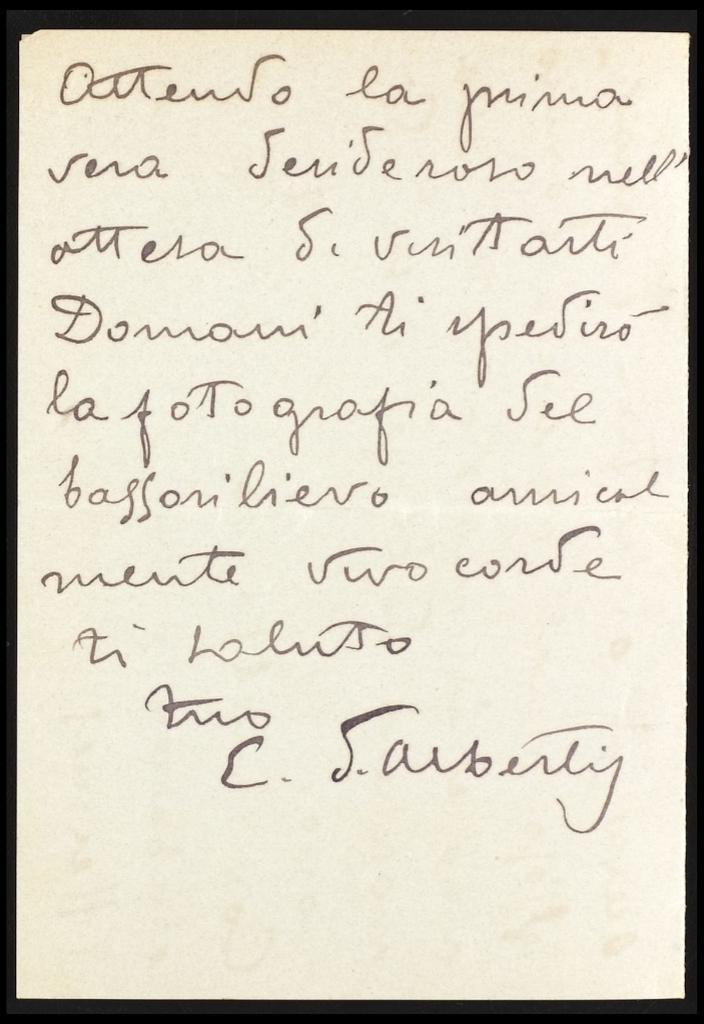 Attendo la prima
vera desideroso nell'
attesa di visittarti
Domani ti spedirò
la fottografia del
bassorilievo amical
mente vivo corde
ti saluto
tuo
E. d'Albertis